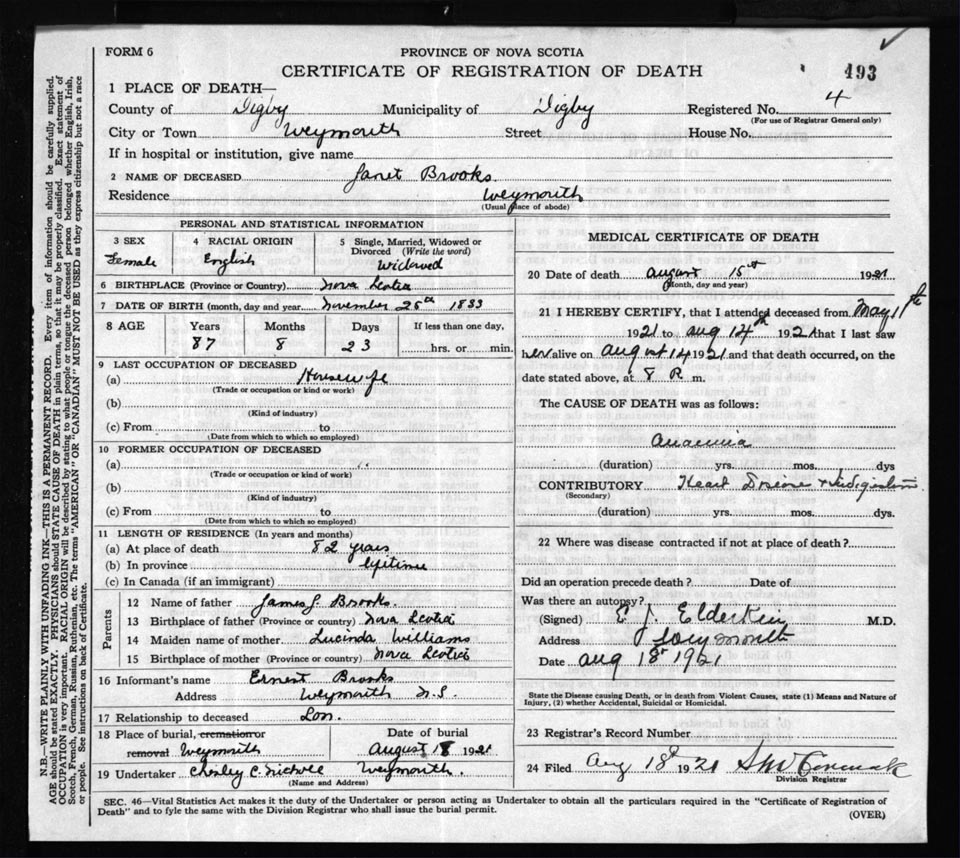 FORM 6
PROVINCE OF NOVA SCOTIA
CERTIFICATE OF REGISTRATION OF DEATH
493
1 PLACE OF DEATH—
County of Digby Municipality of Digby Registered No. 4
(For use of Registrar General only)
City or Town Weymouth Street House No.
If in hospital or institution, give name
2 NAME OF DECEASED Janet Brooks.
Residence Weymouth
(Usual place of abode)
PERSONAL AND STATISTICAL INFORMATION
3 SEX
Female
4 RACIAL ORIGIN
English
5 Single, Married, Widowed or
Divorced (Write the word)
Widowed
6 BIRTHPLACE (Province or Country) Nova Scotia
7 DATE OF BIRTH (month, day and year) November 25th 1833
8 AGE
Years Months Days If less than one day,
87 8 23 hrs. or min.
9 LAST OCCUPATION OF DECEASED
(a) Housewife
(Trade or occupation or kind or work)
(b)
(Kind of industry)
(c) From to
(Date from which to which so employed)
10 FORMER OCCUPATION OF DECEASED
(a)
(Trade or occupation or kind of work)
(b)
(Kind of industry)
(c) From to
(Date from which to which so employed)
11 LENGTH OF RESIDENCE (In years and months)
(a) At place of death 82 years
(b) In province lifetime
(c) In Canada (if an immigrant)
Parents
12 Name of father James J. Brooks.
13 Birthplace of father (Province or country) Nova Scotia
14 Maiden name of mother Lucinda Williams
15 Birthplace of mother (Province or country) Nova Scotia
16 Informant's name Ernest Brooks
Address Weymouth N.S.
17 Relationship to deceased Son.
18 Place of burial, cremation or
removal Weymouth
Date of burial
August 18 1921
19 Undertaker Weymouth.
(Name and Address)
MEDICAL CERTIFICATE OF DEATH
20 Date of death August 15st 1921
(Month, day and year)
21 I HEREBY CERTIFY, that I attended deceased from May 1th
1921 to Aug 14th 1921 that I last saw
her alive on August 14 1921 and that death occurred, on the
date stated above, at 8 P. m.
The CAUSE OF DEATH was as follows:
Anaemia
(duration) yrs. mos. dys
CONTRIBUTORY Heart Disease & Indigestion.
(Secondary)
(duration) yrs. mos. dys.
22 Where was disease contracted if not at place of death?
Did an operation precede death? Date of
Was there an autopsy?
(Signed) E. J. Elderkin M.D.
Address Weymouth
Date Aug 18th 1921
State the Disease causing Death, or in death from Violent Causes, state (1) Means and Nature of
Injury, (2) whether Accidental, Suicidal or Homicidal.
23 Registrar's Record Number
24 Filed Aug 18th 1921
Division Registrar
SEC. 46—Vital Statistics Act makes it the duty of the Undertaker or person acting as Undertaker to obtain all the particulars required in the "Certificate of Registration of
Death" and to fyle the same with the Division Registrar who shall issue the burial permit.
(OVER)
N.B.—WRITE PLAINLY WITH UNFADING INK—THIS IS A PERMANENT RECORD. Every item of information should be carefully supplied.
AGE should be stated EXACTLY. PHYSICIANS should STATE CAUSE OF DEATH in plain terms, so that it may be properly classified. Exact statement of
OCCUPATION is very important. RACIAL ORIGIN will be described by stating to what people or tongue the deceased person belonged whether English, Irish,
Scotch, French, German, Russian, Ruthenian, etc. The terms "AMERICAN" OR "CANADIAN" MUST NOT BE USED as they express citizenship but not a race
or people. See instructions on back of Certificate.